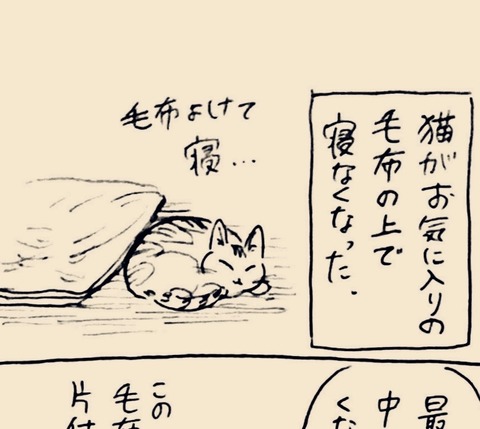 猫がお気に入りの
毛布の上で
寝なくなった.
毛布よけて
寝…
最
中
くな
この
毛布
片付